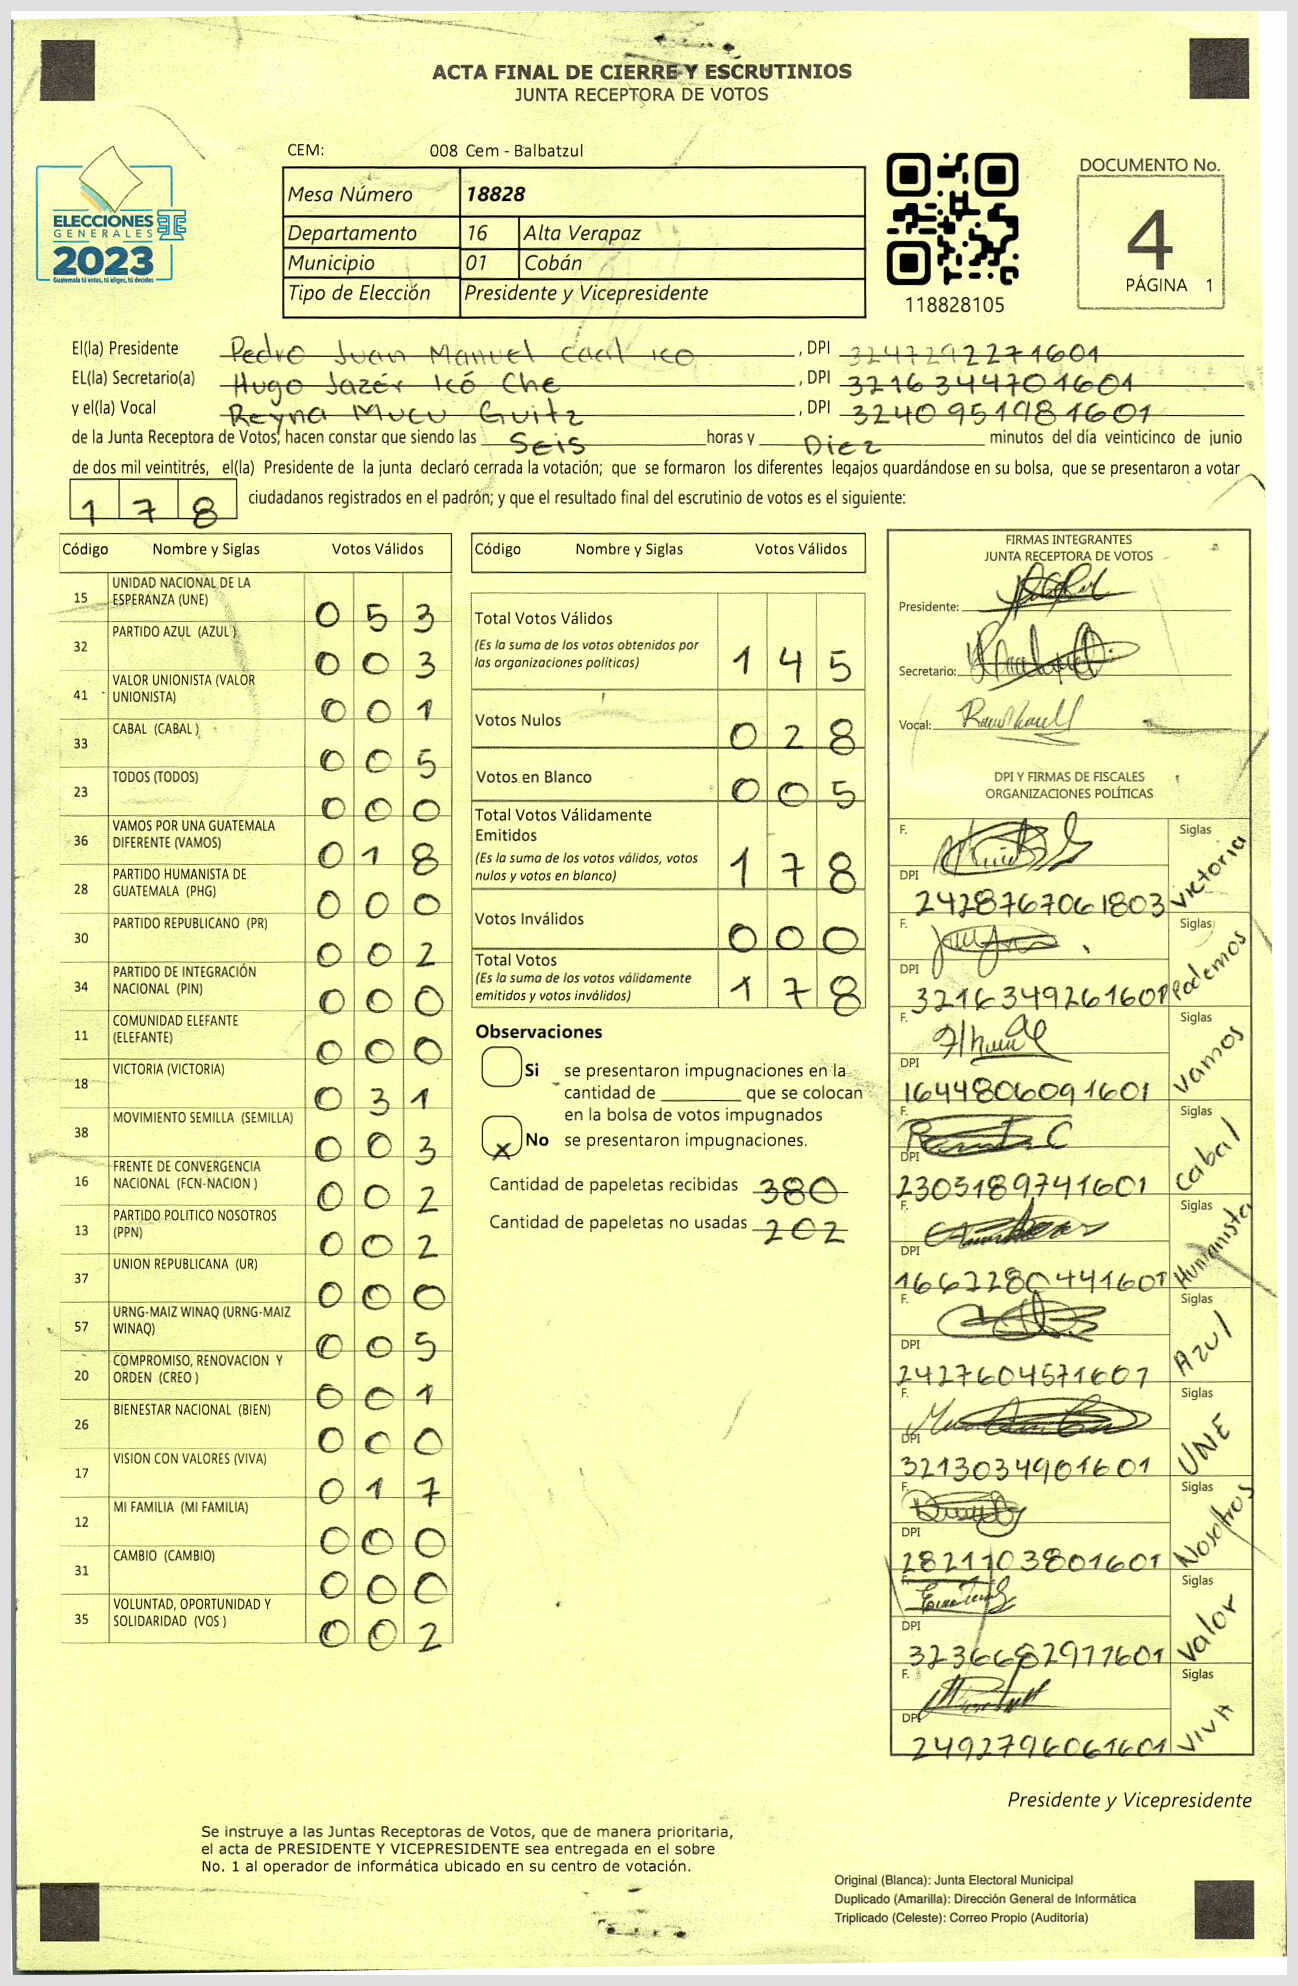 ACTA FINAL DE CIERRE Y ESCRUTINIOS
JUNTA RECEPTORA DE VOTOS
ELECCIONES
GENERALES
2023
Guatemala tú votas, tú eliges, tú decides
CEM: 008 Cem - Balbatzul
Mesa Número 18828
Departamento 16 Alta Verapaz
Municipio 01 Cobán
Tipo de Elección Presidente y Vicepresidente
118828105
DOCUMENTO No.
4
PÁGINA 1
El(la) Presidente Pedro Juan Manuel Caal Ico , DPI 3247292271601
EL(la) Secretario(a) Hugo Jazér Icó Che , DPI 3216344701601
y el(la) Vocal Reyna Mucu Guitz , DPI 3240951981601
de la Junta Receptora de Votos, hacen constar que siendo las Seis horas y Diez minutos del día veinticinco de junio
de dos mil veintitrés, el(la) Presidente de la junta declaró cerrada la votación; que se formaron los diferentes legajos quardándose en su bolsa, que se presentaron a votar
178 ciudadanos registrados en el padrón; y que el resultado final del escrutinio de votos es el siguiente:
Código Nombre y Siglas Votos Válidos
15 UNIDAD NACIONAL DE LA ESPERANZA (UNE) 0 5 3
32 PARTIDO AZUL (AZUL) 0 0 3
41 VALOR UNIONISTA (VALOR UNIONISTA) 0 0 1
33 CABAL (CABAL ) 0 0 5
23 TODOS (TODOS) 0 0 0
36 VAMOS POR UNA GUATEMALA DIFERENTE (VAMOS) 0 1 8
28 PARTIDO HUMANISTA DE GUATEMALA (PHG) 0 0 0
30 PARTIDO REPUBLICANO (PR) 0 0 2
34 PARTIDO DE INTEGRACIÓN NACIONAL (PIN) 0 0 0
11 COMUNIDAD ELEFANTE (ELEFANTE) 0 0 0
18 VICTORIA (VICTORIA) 0 3 1
38 MOVIMIENTO SEMILLA (SEMILLA) 0 0 3
16 FRENTE DE CONVERGENCIA NACIONAL (FCN-NACION ) 0 0 2
13 PARTIDO POLITICO NOSOTROS (PPN) 0 0 2
37 UNION REPUBLICANA (UR) 0 0 0
57 URNG-MAIZ WINAQ (URNG-MAIZ WINAQ) 0 0 5
20 COMPROMISO, RENOVACION Y ORDEN (CREO ) 0 0 1
26 BIENESTAR NACIONAL (BIEN) 0 0 0
17 VISION CON VALORES (VIVA) 0 1 7
12 MI FAMILIA (MI FAMILIA) 0 0 0
31 CAMBIO (CAMBIO) 0 0 0
35 VOLUNTAD, OPORTUNIDAD Y SOLIDARIDAD (VOS ) 0 0 2
Código Nombre y Siglas Votos Válidos
Total Votos Válidos
(Es la suma de los votos obtenidos por
las organizaciones políticas) 1 4 5
Votos Nulos 0 2 8
Votos en Blanco 0 0 5
Total Votos Válidamente
Emitidos
(Es la suma de los votos válidos, votos
nulos y votos en blanco) 1 7 8
Votos Inválidos 0 0 0
Total Votos
(Es la suma de los votos válidamente
emitidos y votos inválidos) 1 7 8
Observaciones
Si se presentaron impugnaciones en la
cantidad de ________ que se colocan
en la bolsa de votos impugnados
x No se presentaron impugnaciones.
Cantidad de papeletas recibidas 380
Cantidad de papeletas no usadas 202
FIRMAS INTEGRANTES
JUNTA RECEPTORA DE VOTOS
Presidente:
Secretario:
Vocal:
DPI Y FIRMAS DE FISCALES
ORGANIZACIONES POLÍTICAS
F. Siglas Victoria
DPI 2428767061803
F. Siglas Podemos
DPI 3216349261601
F. Siglas Vamos
DPI 1644806091601
F. Siglas Cabal
DPI 2305189741601
F. Siglas Humanista
DPI 1667280441601
F. Siglas Azul
DPI 2427604571601
F. Siglas UNE
DPI 3213034901601
F. Siglas Nosotros
DPI 2821103801601
F. Siglas Valor
DPI 3236682971601
F. Siglas VIVA
DPI 2492796061601
Presidente y Vicepresidente
Se instruye a las Juntas Receptoras de Votos, que de manera prioritaria,
el acta de PRESIDENTE Y VICEPRESIDENTE sea entregada en el sobre
No. 1 al operador de informática ubicado en su centro de votación.
Original (Blanca): Junta Electoral Municipal
Duplicado (Amarilla): Dirección General de Informática
Triplicado (Celeste): Correo Propio (Auditoría)